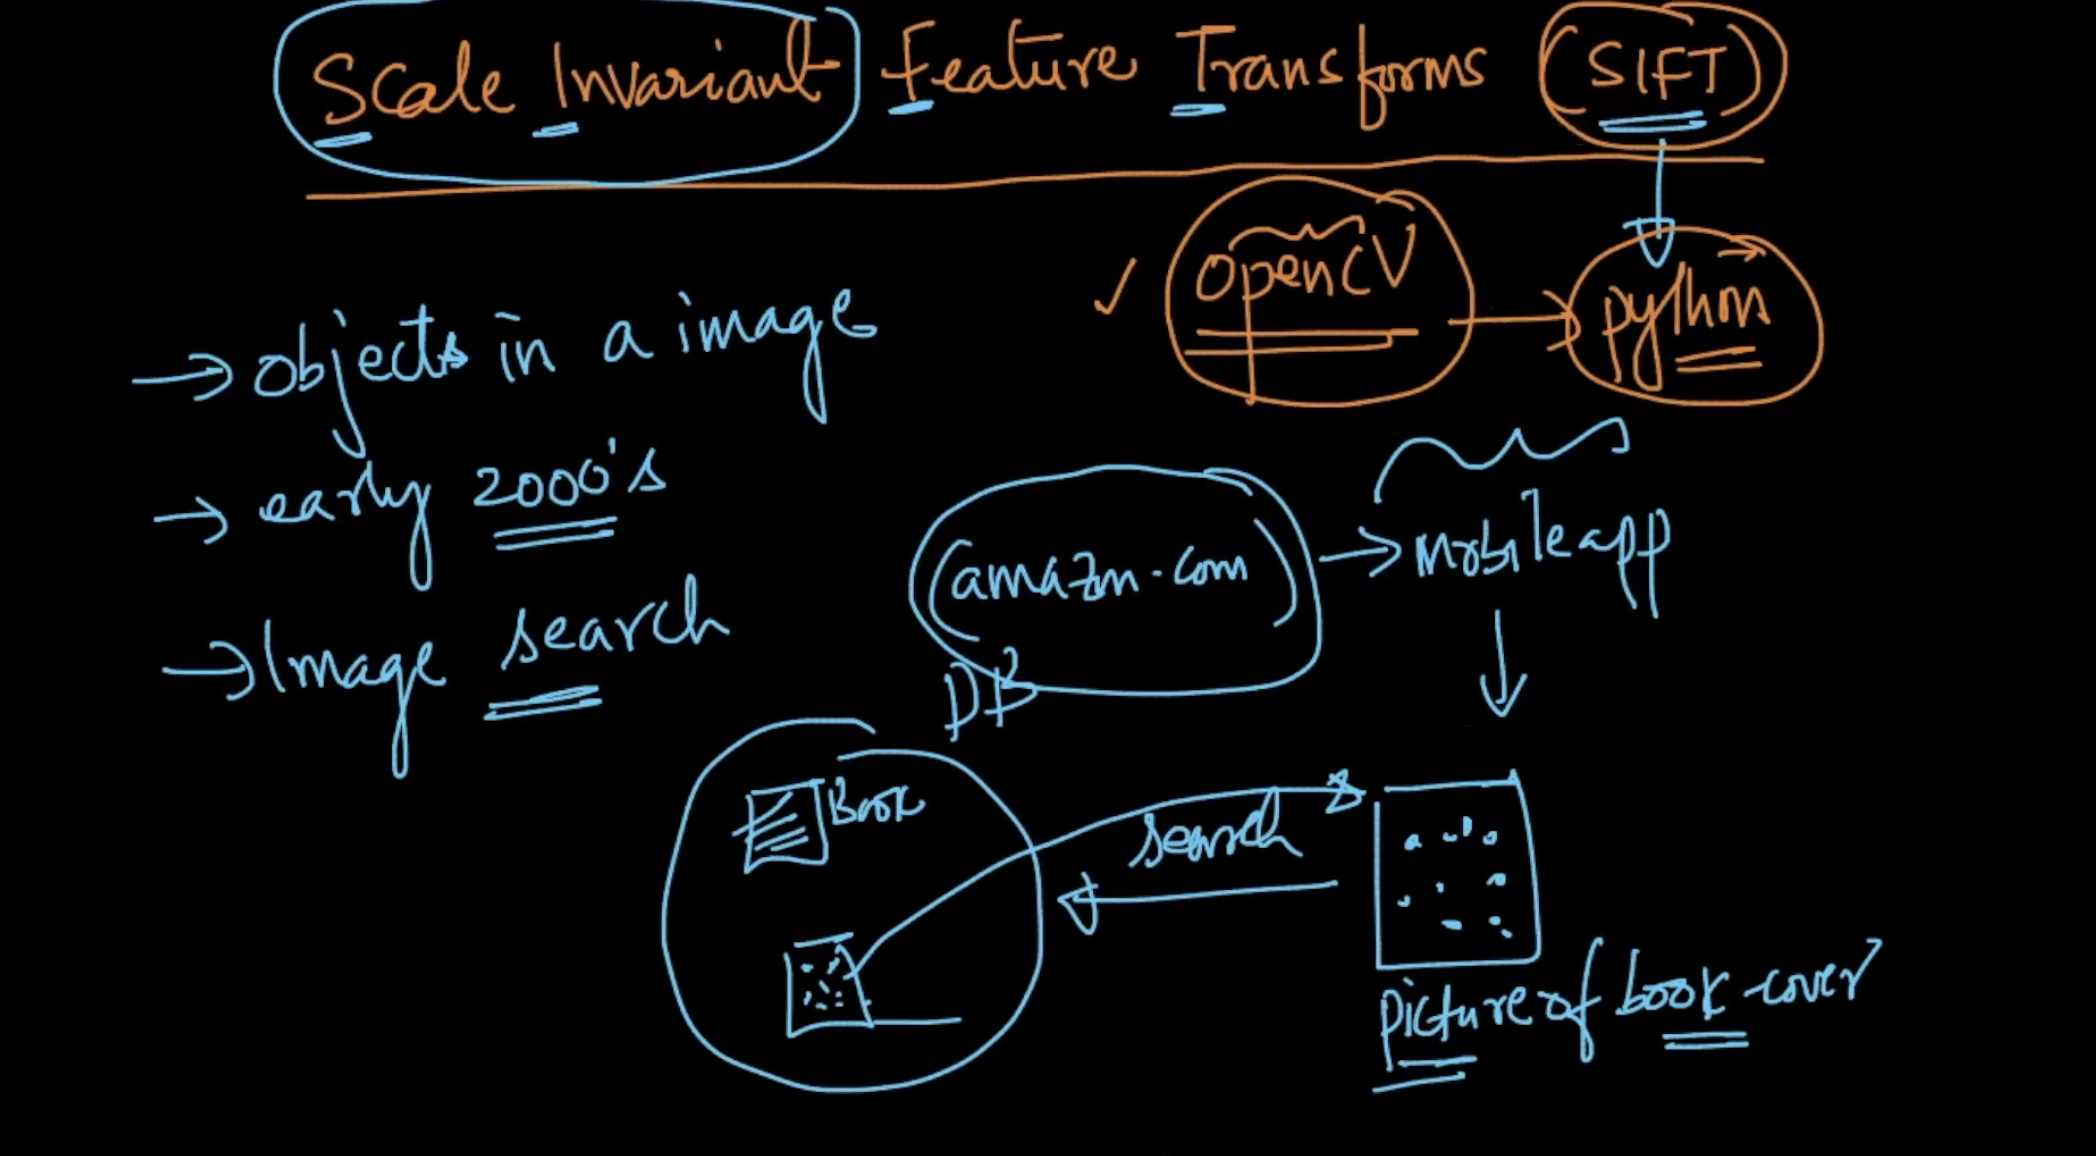 Scale Invariant Feature Transforms (SIFT)
openCV
python
objects in a image
early 2000's
Image search
(amazon.com)
mobile app
DB
Book
search
picture of book cover